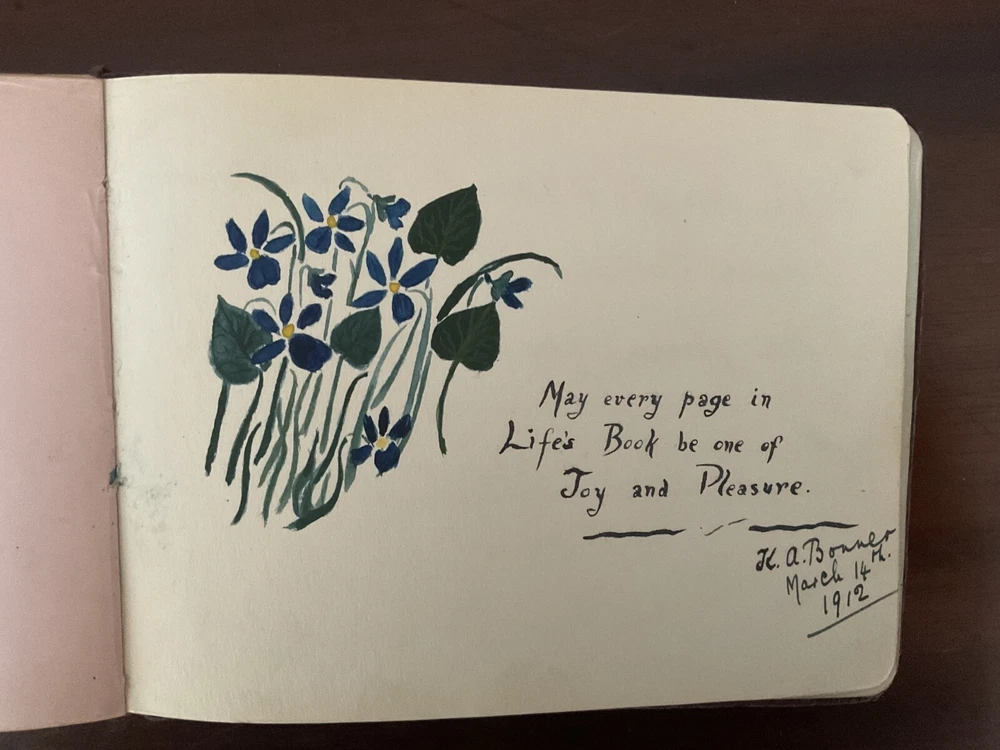 May every page in
Life's Book be one of
Joy and Pleasure.
A. Bonner
March 14th.
1912